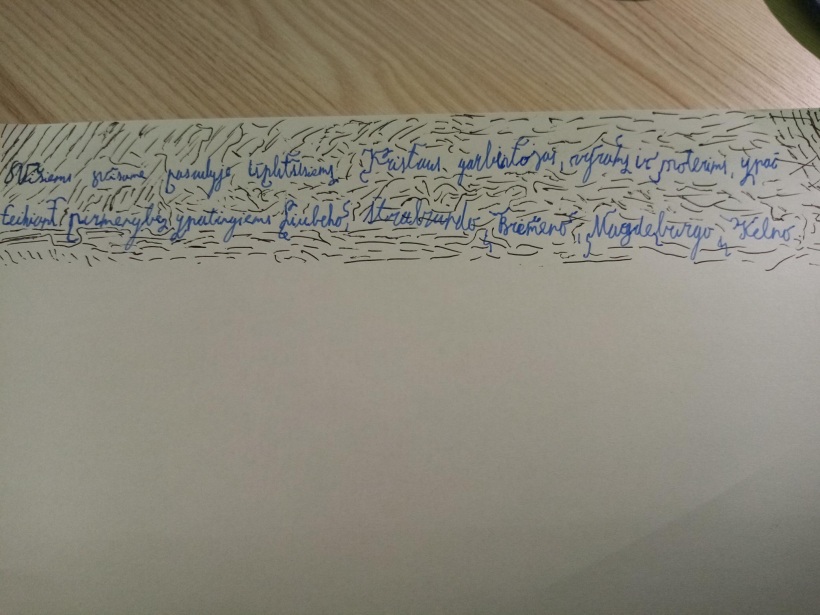 Visiems visame pasaulyje išplitusiems Kristaus garbintojas, vyrams ir moterims, ypač
teikiant pirmenybę ypatingiems Liubeko, Stralzundo, Bremeno, Magdeburgo, Kelno